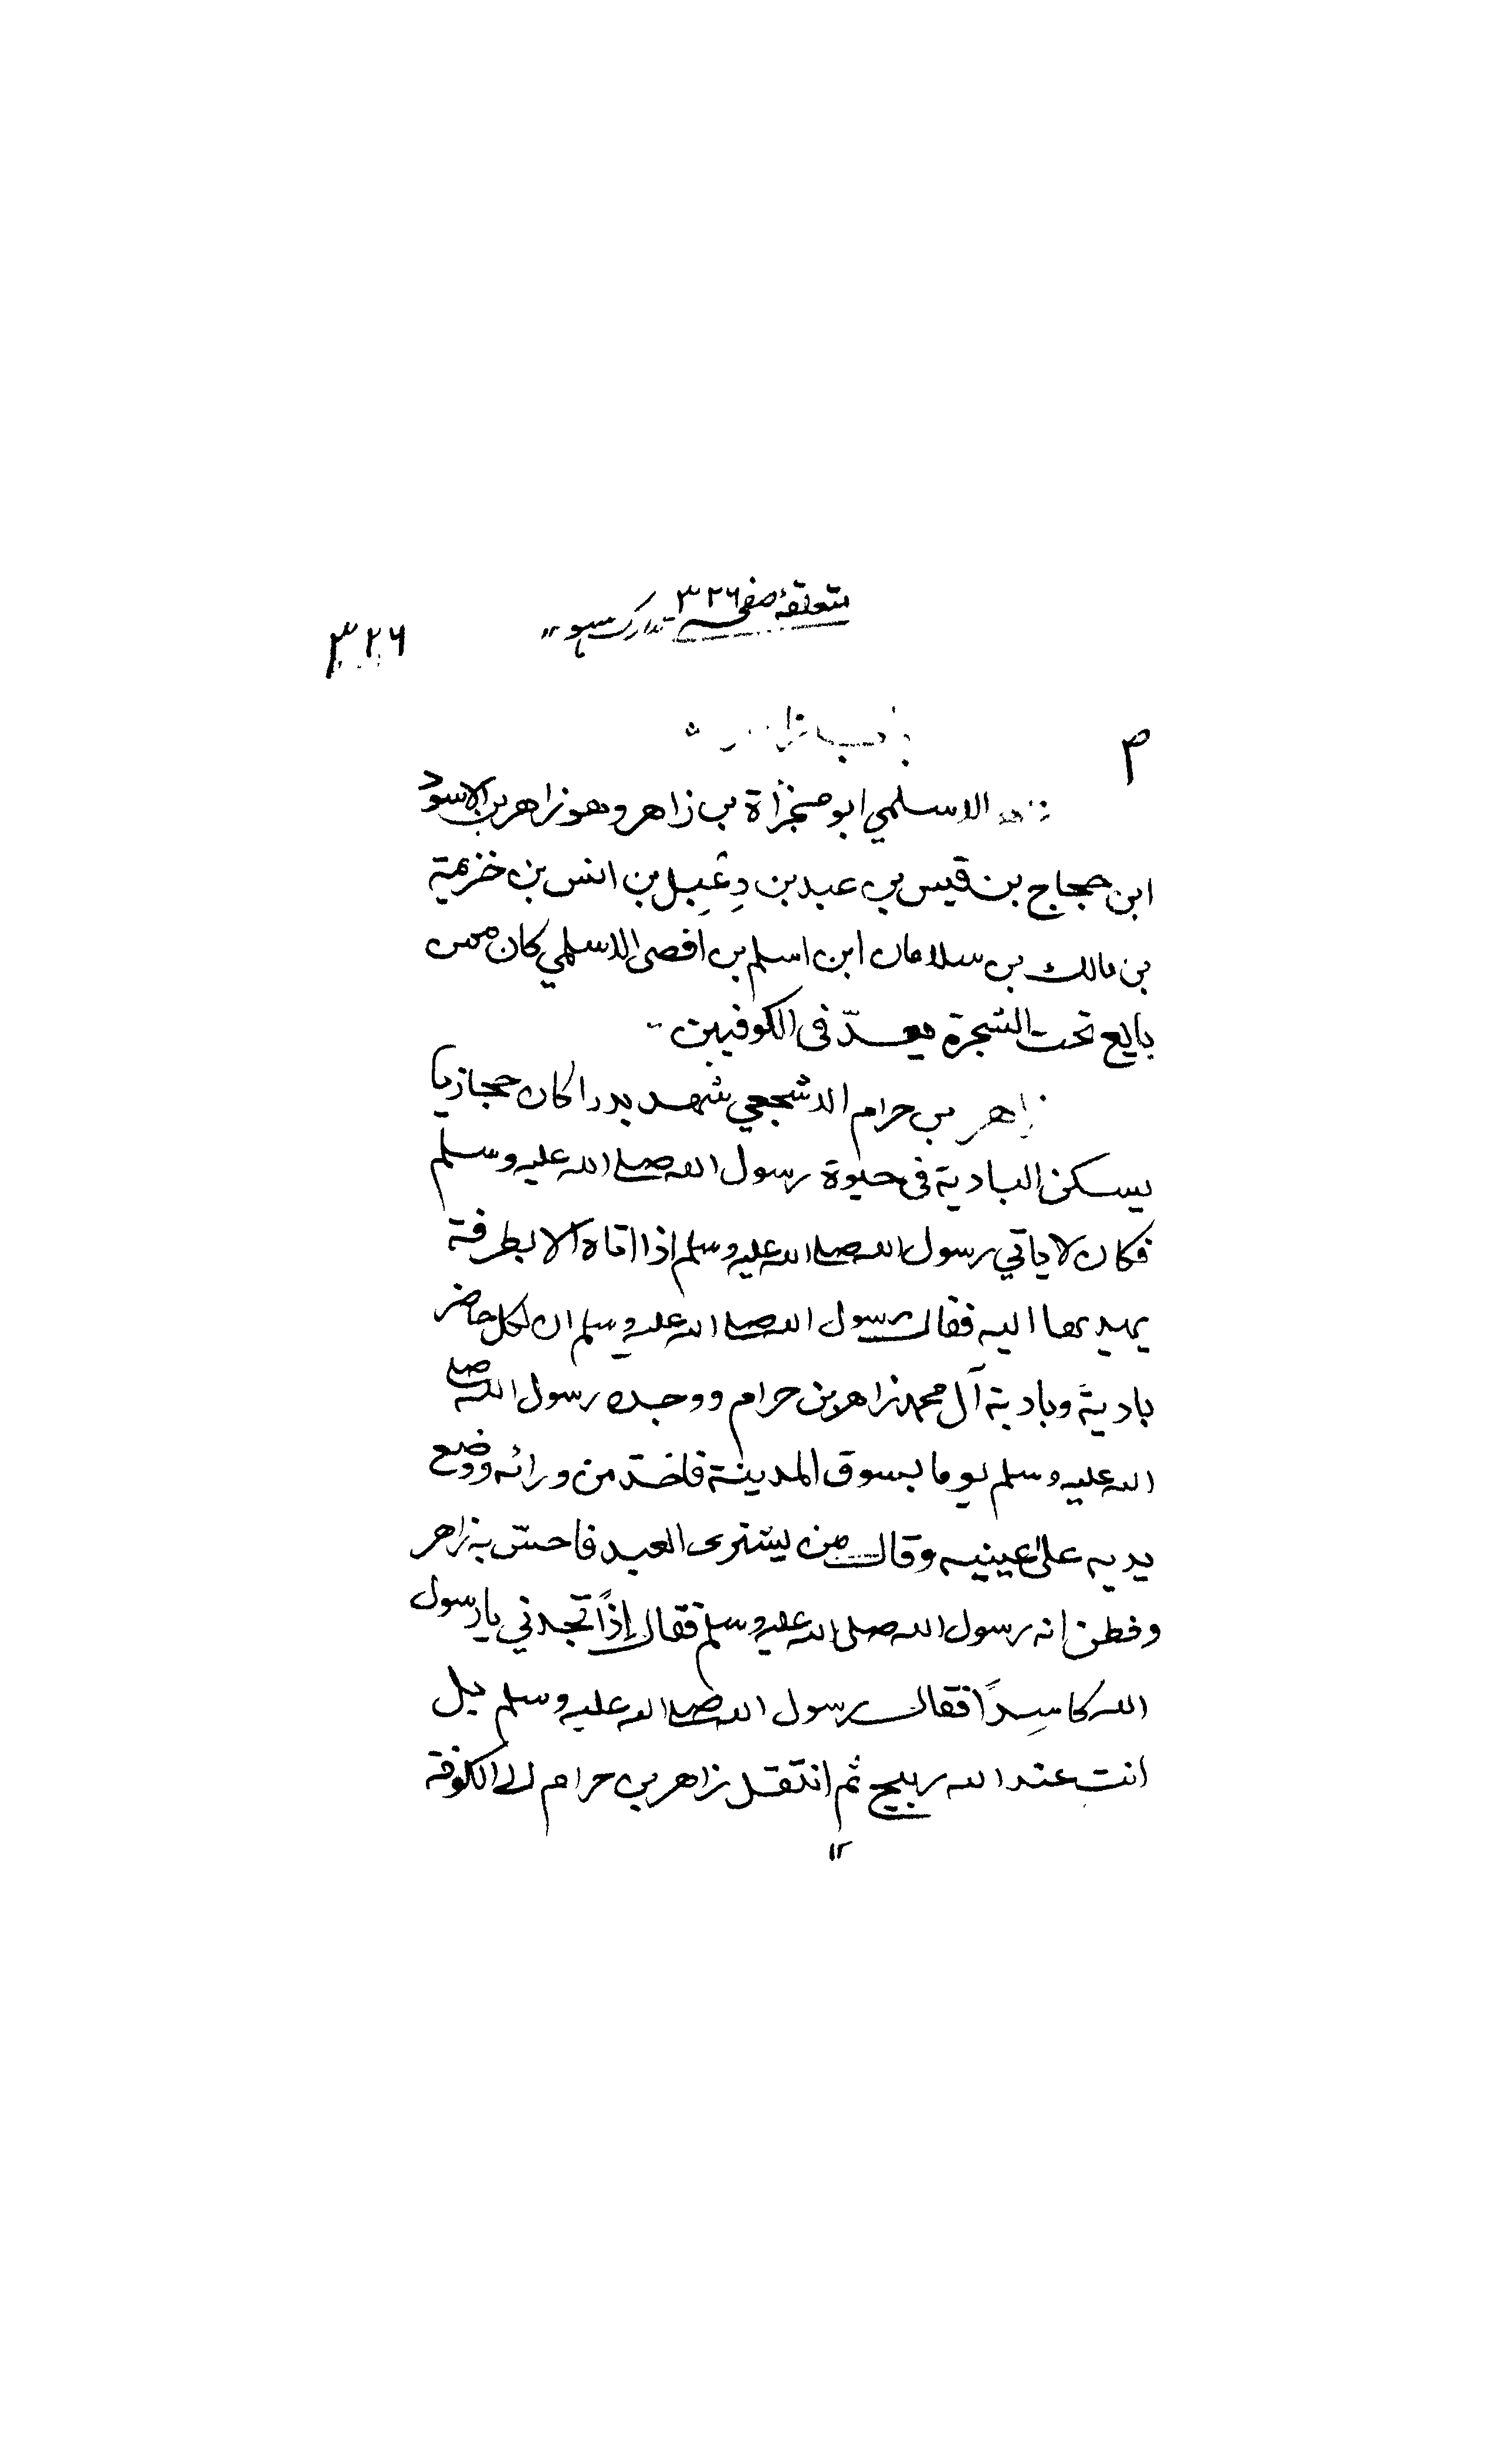 متعلقهٔ صفحه ٣٢٦ تدارک سہو
٣٢٦
م
باب زاهر
زاهر الاسلمي ابو مجزأة بن زاهر وهو زاهر بن الاسود
ابن حجاج بن قيس بن عبد بن دِعْبِل بن انس بن خزيمة
بن مالك بن سلامان ابن اسلم بن افصى الاسلمي كان ممن
بايع تحت الشجرة يعدّ فى الكوفيين
زاهر بن حرام الاشجعي شهد بدرا كان حجازيا
يسكن البادية فى حيوة رسول الله صلى الله عليه وسلم
فكان لا ياتي رسول الله صلى الله عليه وسلم اذا اتاه الا بطرفة
يهديها اليه فقال رسول الله صلى الله عليه وسلم ان لكل حاضر
بادية وبادية آل محمد زاهر بن حرام ووجده رسول الله صلى
الله عليه وسلم يوما بسوق المدينة فاخذه من ورائه ووضع
يديه على عينيه وقال من يشترى العبد فاحسّ به زاهر
وفطن انه رسول الله صلى الله عليه وسلم فقال إذاً تجدني يا رسول
الله كاسِداً فقال رسول الله صلى الله عليه وسلم بل
انت عند الله ربيح ثم انتقل زاهر بن حرام الى الكوفة
١٢